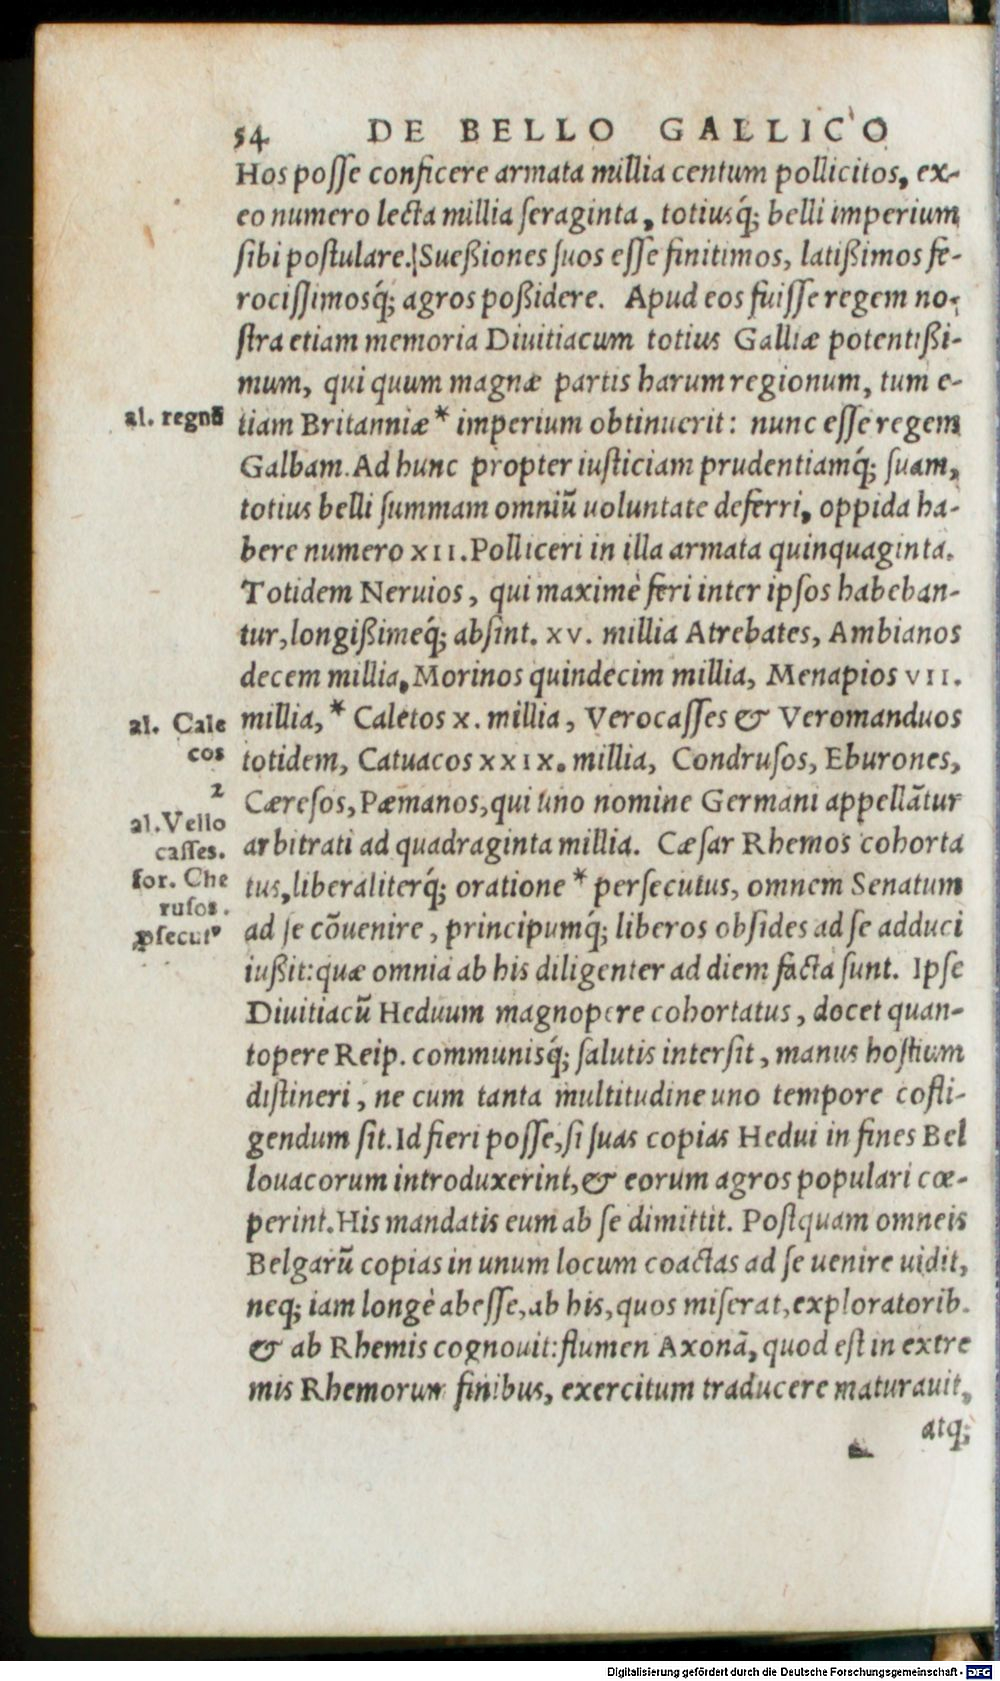 54 DE BELLO GALLICO
Hos posse conficere armata millia centum pollicitos, ex-
eo numero lecta millia seraginta, totiusq́; belli imperium
sibi postulare. Sueßiones suos esse finitimos, latißimos fe-
rocissimosq́; agros poßidere. Apud eos fuisse regem no-
stra etiam memoria Diuitiacum totius Galliæ potentißi-
mum, qui quum magnæ partis harum regionum, tum e-
al. regnū
tiam Britanniæ* imperium obtinuerit: nunc esse regem
Galbam. Ad hunc propter iusticiam prudentiamq́; suam,
totius belli summam omniū uoluntate deferri, oppida ha-
bere numero XII. Polliceri in illa armata quinquaginta.
Totidem Neruios, qui maximè feri inter ipsos habeban-
tur, longißimeq́; absint. XV. millia Atrebates, Ambianos
decem millia, Morinos quindecim millia, Menapios VII.
al. Cale
cos
millia,* Caletos X. millia, Verocasses & Veromanduos
totidem, Catuacos XXIX. millia, Condrusos, Eburones,
2
al. Vello
casses.
Cæresos, Pæmanos, qui uno nomine Germani appellātur
arbitrati ad quadraginta millia. Cæsar Rhemos cohorta
for. Che
rusos.
ꝑsecutꝰ
tus, liberaliterq́; oratione* persecutus, omnem Senatum
ad se cōuenire, principumq́; liberos obsides ad se adduci
iußit: quæ omnia ab his diligenter ad diem facta sunt. Ipse
Diuitiacū Heduum magnopere cohortatus, docet quan-
topere Reip. communisq́; salutis intersit, manus hostium
distineri, ne cum tanta multitudine uno tempore cofli-
gendum sit. Id fieri posse, si suas copias Hedui in fines Bel
louacorum introduxerint, & eorum agros populari cœ-
perint. His mandatis eum ab se dimittit. Postquam omneis
Belgarū copias in unum locum coactas ad se uenire uidit,
neq; iam longè abesse, ab his, quos miserat, exploratorib.
& ab Rhemis cognouit: flumen Axonā, quod est in extre
mis Rhemorum finibus, exercitum traducere maturauit,
atq;
Digitalisierung gefördert durch die Deutsche Forschungsgemeinschaft - DFG